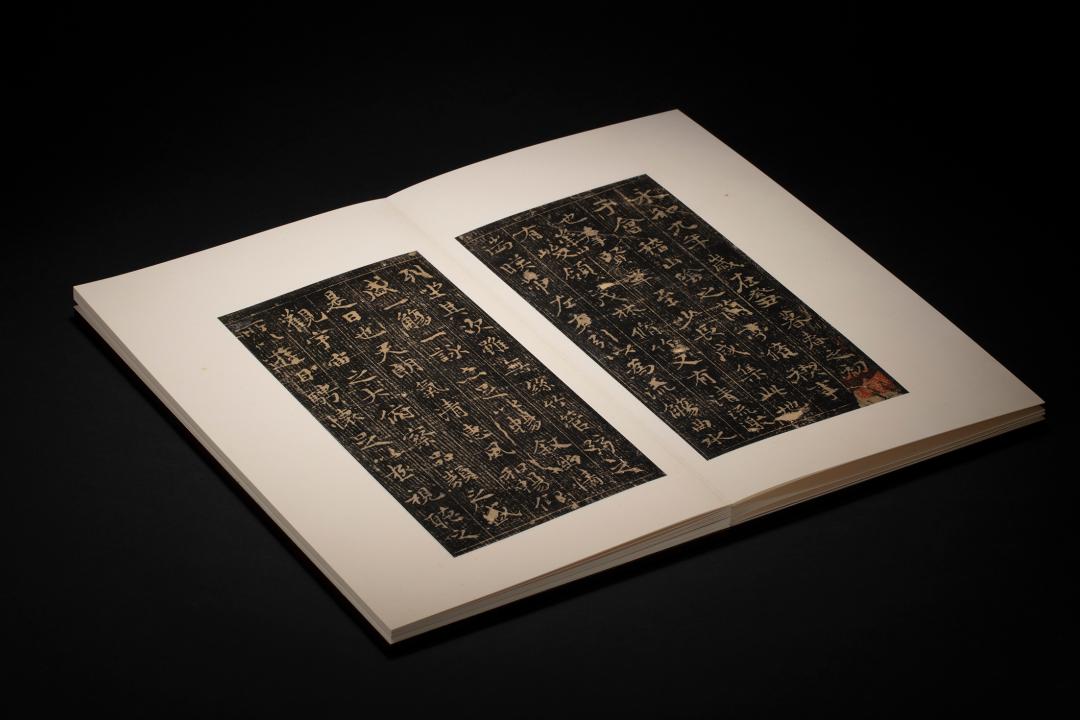 永和九年歲在癸丑暮春之初會
于會稽山陰之蘭亭脩稧事
也羣賢畢至少長咸集此地
有崇山峻領茂林脩竹又有清流激
湍暎帶左右引以爲流觴曲水
列坐其次雖無絲竹管弦之
盛一觴一詠亦足以暢敘幽情
是日也天朗氣清惠風和暢仰
觀宇宙之大俯察品類之盛
所以遊目騁懷足以極視聽之